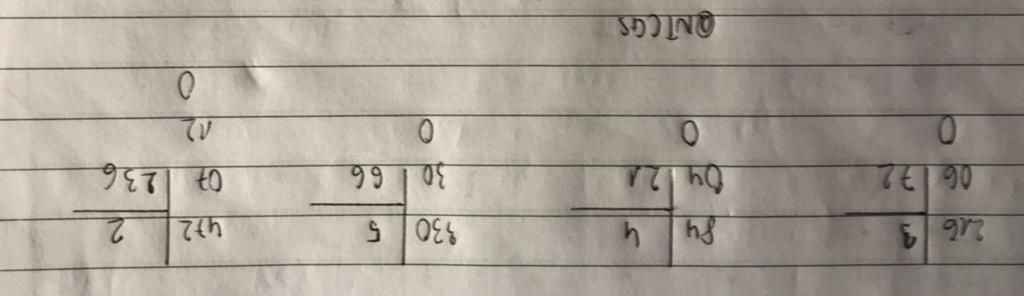 216 3 84 4 330 5 472 2
06 72 04 21 30 66 07 236
0 0 0 12
0
@NTCGS